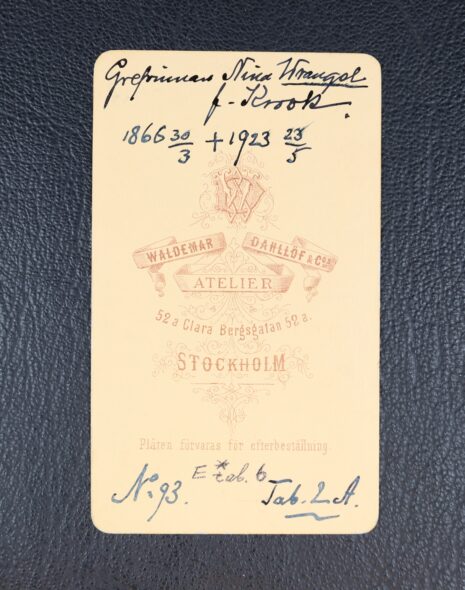 Grefvinnan Nina Wrangel
f. Krook.
1866 30/3 + 1923 23/5
WD
WALDEMAR DAHLLÖF & Co
ATELIER
52a Clara Bergsgatan 52a.
STOCKHOLM
Plåten förvaras för efterbeställning.
E * tab. 6
No. 93. Tab. 2 A.